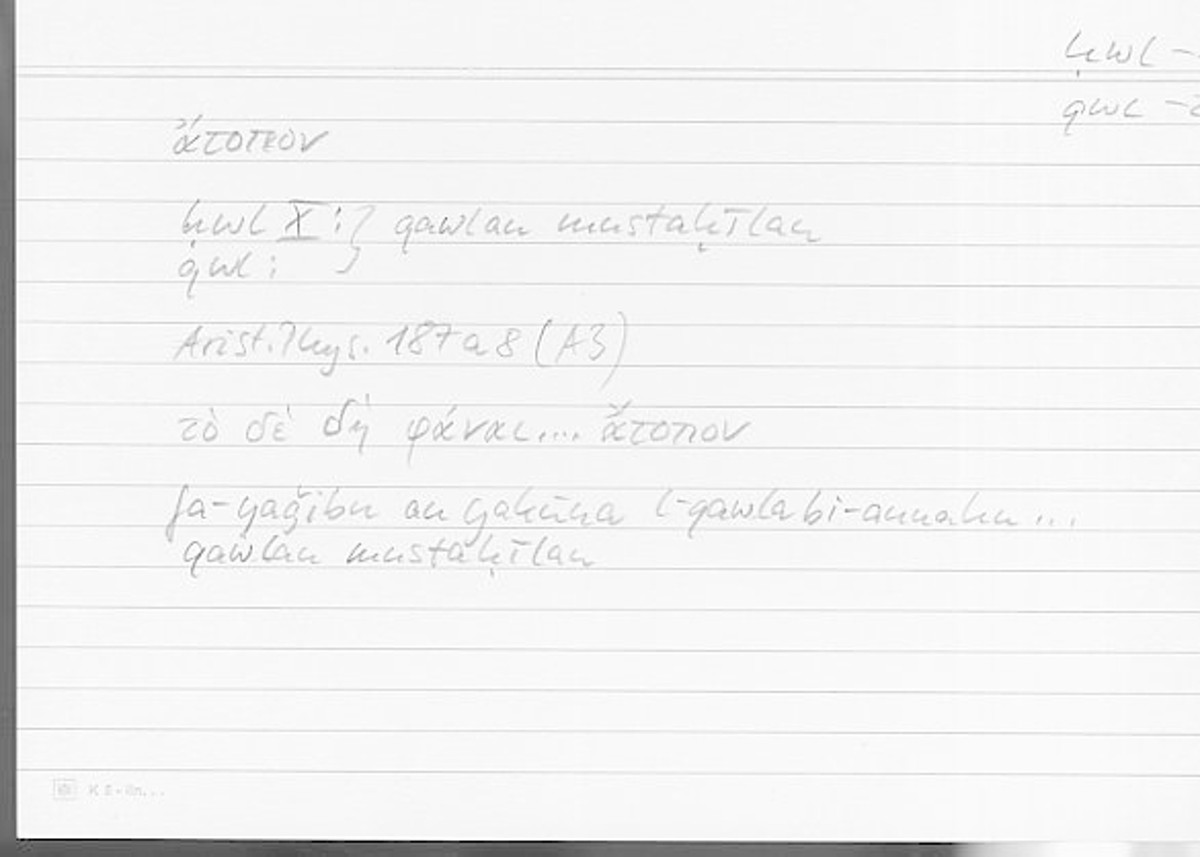 ḥwl –
qwl –
ἄτοπον
ḥwl X : } qawlan mustaḥīlan
qwl :
Arist. Phys. 187 a 8 (A3)
τὸ δὲ δὴ φάναι.... ἄτοπον
fa-yaǧibu an yakūna l-qawla bi-annahu ...
qawlan mustaḥīlan